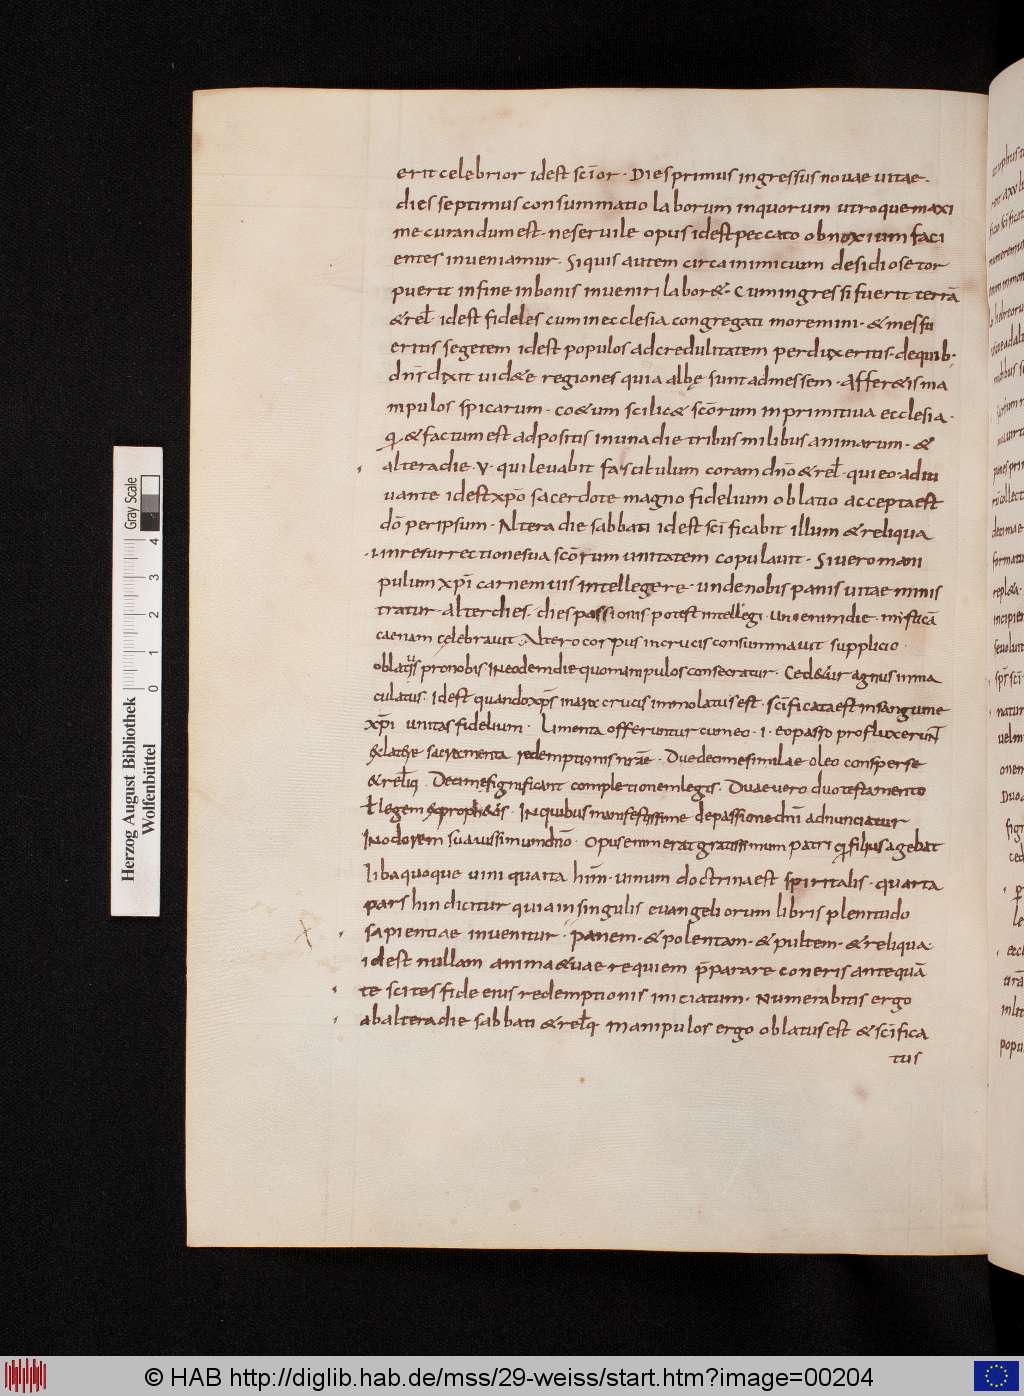 erit celebrior idest sc̄ior · Dies primus ingressus novae vitae ·
dies septimus consummatio laborum inquorum utroque maxi
me curandum est · ne servile opus idest peccato obnoxium faci
entes inveniamur · Siquis autem circa inimicum desidiose tor
puerit infine inbonis inveniri labor& · Cum ingressi fuerit terrā
& reł idest fideles cum inecclesia congregati moremini · & messu
eritis segetem idest populos adcredulitatem perduxeritis · dequib·
dn̄s dixit vid&e regiones quia albę sunt admessem · Affer&is ma
nipulos spicarum · co&um scilic& sc̄orum inprimitiva ecclesia ·
& factum est adpositis inuna die tribus milibus animarum · &
altera die · V · qui levabit fasciculum coram dn̄o & reł · qui eo adiu
vante idest xp̄o sacerdote magno fidelium oblatio accepta est
dō peripsum · Altera die sabbati idest sc̄i ficabit illum & reliqua
· inresurrectione sua sc̄orum unitatem copulavit · Si vero mani
pulum xp̄i carnem vis intellegere · unde nobis panis vitae minis
tratur · alter dies · dies passionis potest intellegi · uno enim die · misticā
caenam celebravit Altero corpus incrucis consummavit supplicio ·
oblatus pronobis Ineodem die quo manipulos consecratur · Ced&ur agnus inma
culatus · Idest quando xp̄s in crucis immolatus est · sc̄ificata est insanguine
xp̄i unitas fidelium · Limenta offeruntur cum eo · i · eo passo profluxerunt
exlatere sacramenta redemptionis nr̄ae · Duedecime similae oleo consperse
& reliq · Decime significant completionem legis · Duae vero duo testamento
ł legem & proph&as · Inquibus manifestissime depassione dn̄i adnunciatur
Inodorem suavissimum dn̄o · Opus enim erat gratissimum patri filius agebat
Libaquoque vini quarta hin̄ · vinum doctrina est spiritalis · quarta
pars hin dicitur quia insingulis evangeliorum libris plenitudo
sapientiae invenitur · panem · & polentam · & pultem · & reliqua ·
idest nullam anima&uae requiem p̄parare coneris antequā
te scites fide eius redemptionis iniciatum · Numerabitis ergo
abaltera die sabbati & rełq manipulos ergo oblatus est & sc̄ifica
tus
Herzog August Bibliothek
Wolfenbüttel
Gray Scale
0 1 2 3 4
© HAB http://diglib.hab.de/mss/29-weiss/start.htm?image=00204